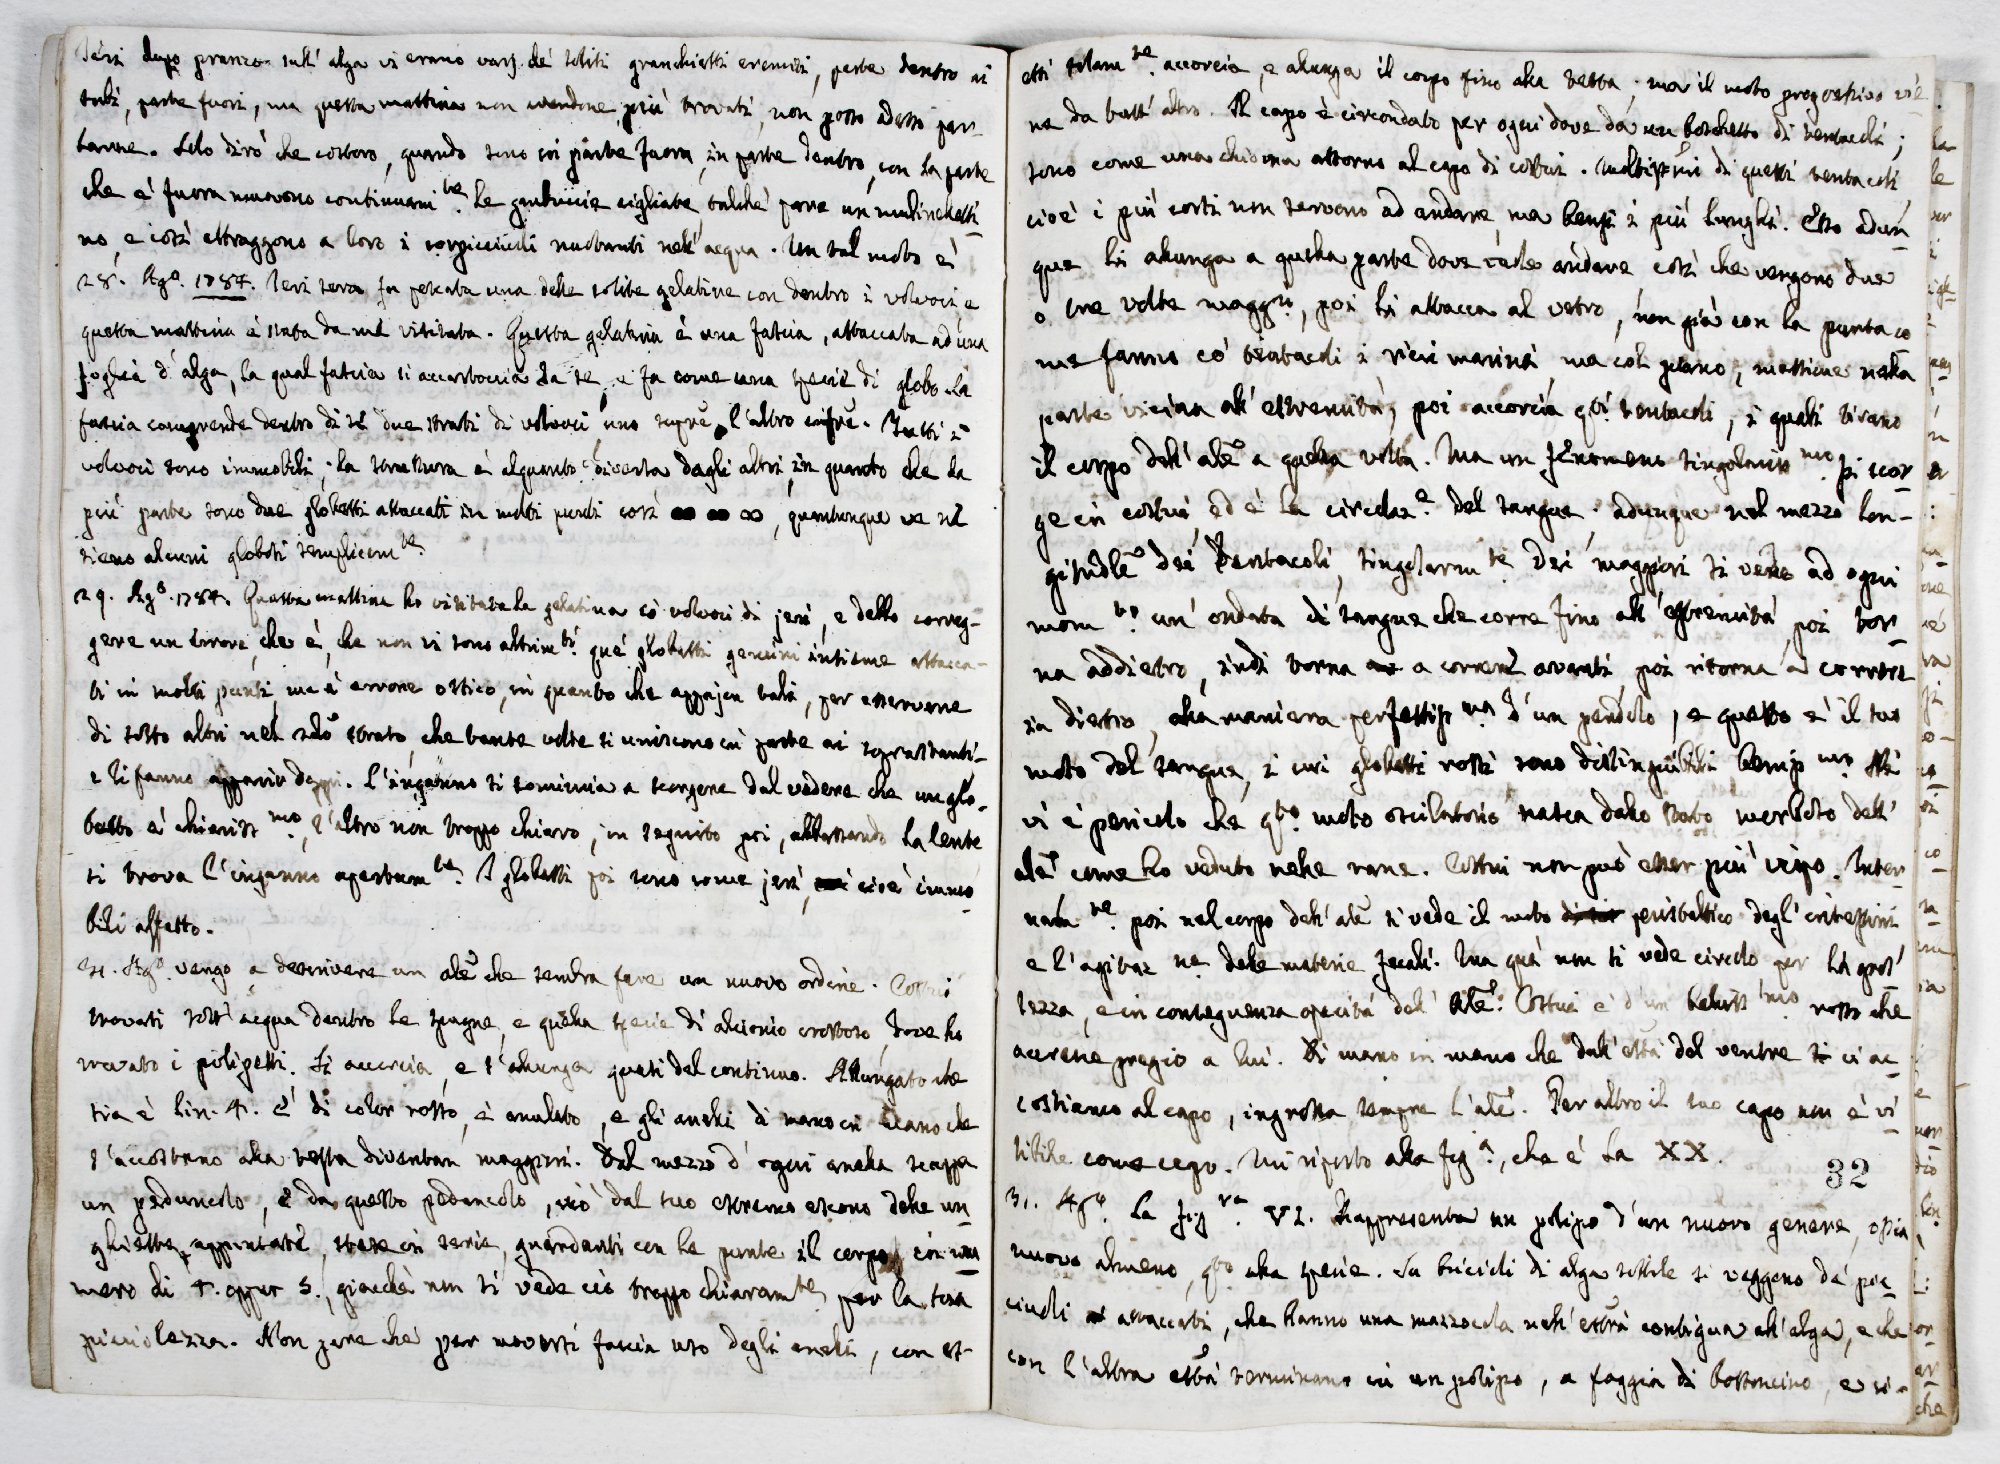 Jeri dopo pranzo sull' alga vi erano varj de' soliti granchietti eremiti, parte dentro ai
tubi, parte fuori, ma questa mattina non avendone più trovati, non posso adesso par-
larne. Solo dirò che costoro, quando sono in parte fuora, in parte dentro, con la parte
che è fuora muovono continuam.te le cigliate talchè pare un mulinelletti
no, e così attraggono a loro i corpicciuoli nuotanti nell' acqua. Un tal moto è
28. Ag.o 1784. Jeri sera fu pescata una delle solite gelatine con dentro i volvoci e
questa mattina è stata da me visitata. Questa gelatina è una fascia, attaccata ad una
foglia d' alga, la qual fascia si accartoccia da se, e fa come una specie di globo. La
fascia comprende dentro di sè due strati di volvoci, uno super.e l'altro infer.e. Tutti i
volvoci sono immobili; la struttura è alquanto diversa dagli altri, in quanto che la
più parte sono due globetti attaccati in molti punti così ∞ ∞ ∞, quantunque ve ne
sieno alcuni globosi semplicem.te
29. Ag.o 1784. Questa mattina ho visitata la gelatina co' volvoci di jeri, e debbo correg-
gere un errore, che è, che non vi sono altrim.ti que' globetti gemini insieme attacca-
ti in molti punti, ma è errore ottico, in quanto che appajon tali, per esservene
di sotto altri nel 2do strato, che tante volte si uniscono in parte ai soprastanti
e li fanno apparir doppj. L'inganno si comincia a scorgere dal vedere che un glo-
betto è chiariss.mo, l'altro non troppo chiaro, in seguito poi, abbassando la lente
si trova l'inganno apertam.te. I globetti poi sono come jeri, cioè immo
bili affatto.
31. Ag.o vengo a descrivere un ale che sembra fare un nuovo ordine. Costui
trovati sott' acqua dentro le spugne, e quella specie di alcionio crostoso, dove ho
trovato i polipetti. Si accorcia, e s'allunga quasi del continuo. Allungato che
sia è lin. 4. E' di color rosso, è anulato, e gli anelli di mano in mano che
s'accostano alla testa diventan maggiori. Dal mezzo d' ogni anello scappa
un peduncolo, e da questo peduncolo, ciò dal suo estremo escono delle un
ghiette appuntate, stese in serie, guardanti con le punte il corpo, in nu
mero di 4. oppur 5., giacchè non si vede ciò troppo chiaram.te per la sua
picciolezza. Non pare che per moversi faccia uso degli anelli, con es-
essi solam.te accorcia, e alunga il corpo fino alla testa; ma il moto progressivo vie
ne da tutt' altro. Il capo è circondato per ogni dove da un boschetto di tentacoli;
sono come una chioma attorno al capo di costui. Moltissimi di questi tentacoli
cioè i più corti non servono ad andare, ma bensì i più lunghi. Esso adun
que li alunga a quella parte dove vuole andare, così che vengono due
o tre volte maggri, poi li attacca al vetro, non già con la punta co
me fanno co' tentacoli i ricci marini ma col piano, massime nella
parte vicina all' estremità, poi accorcia q.ti tentacoli, i quali tirano
il corpo dell' ale a quella volta. Ma un fenomeno singolariss.mo si scor
ge in costui, ed è la circolaz.e del sangue. adunque nel mezzo lon-
gitudle dei tentacoli, singolarm.te dei maggiori si vede ad ogni
mom.to un' ondata di sangue che corre fino all' estremità, poi tor
na addietro, indi torna a correre avanti poi ritorna a correre
in dietro, alla maniera perfettiss.ma d'un pendolo, e questo è il suo
moto del sangue, i cui globetti rossi sono distinguibili beniss.mo. Nè
vi è pericolo che q.to moto oscilatorio nasca dallo stato del'
ale come ho veduto nelle rane. Costui non può esser più vispo. Inter
nam.te poi nel corpo dell' ale si vede il moto peristaltico degl' intestini
e l'agitaz.ne delle materie fecali. Ma quà non si vede circolo per la gros'
sezza, e in conseguenza opacità dell' ale. Costui è d'un beliss.mo rosso che
accresce pregio a lui. Di mano in mano che dall' està del ventre ci ac
costiamo al capo, ingrossa sempre l'ale. Per altro il suo capo non è vi
sibile come capo. Mi riporto alla fig.a, che è la XX.
32
31. Ag.o La fig.ra VI. Rappresenta un polipo d'un nuovo genere, ossia
nuovo almeno, q.to alla specie. Su bricioli di alga sottile si veggono de' pic
ciuoli attaccati, che hanno una mazzocola nell' està contigua all' alga, e che
con l'altra està terminano in un polipo, a foggia di bottoncino, e si-